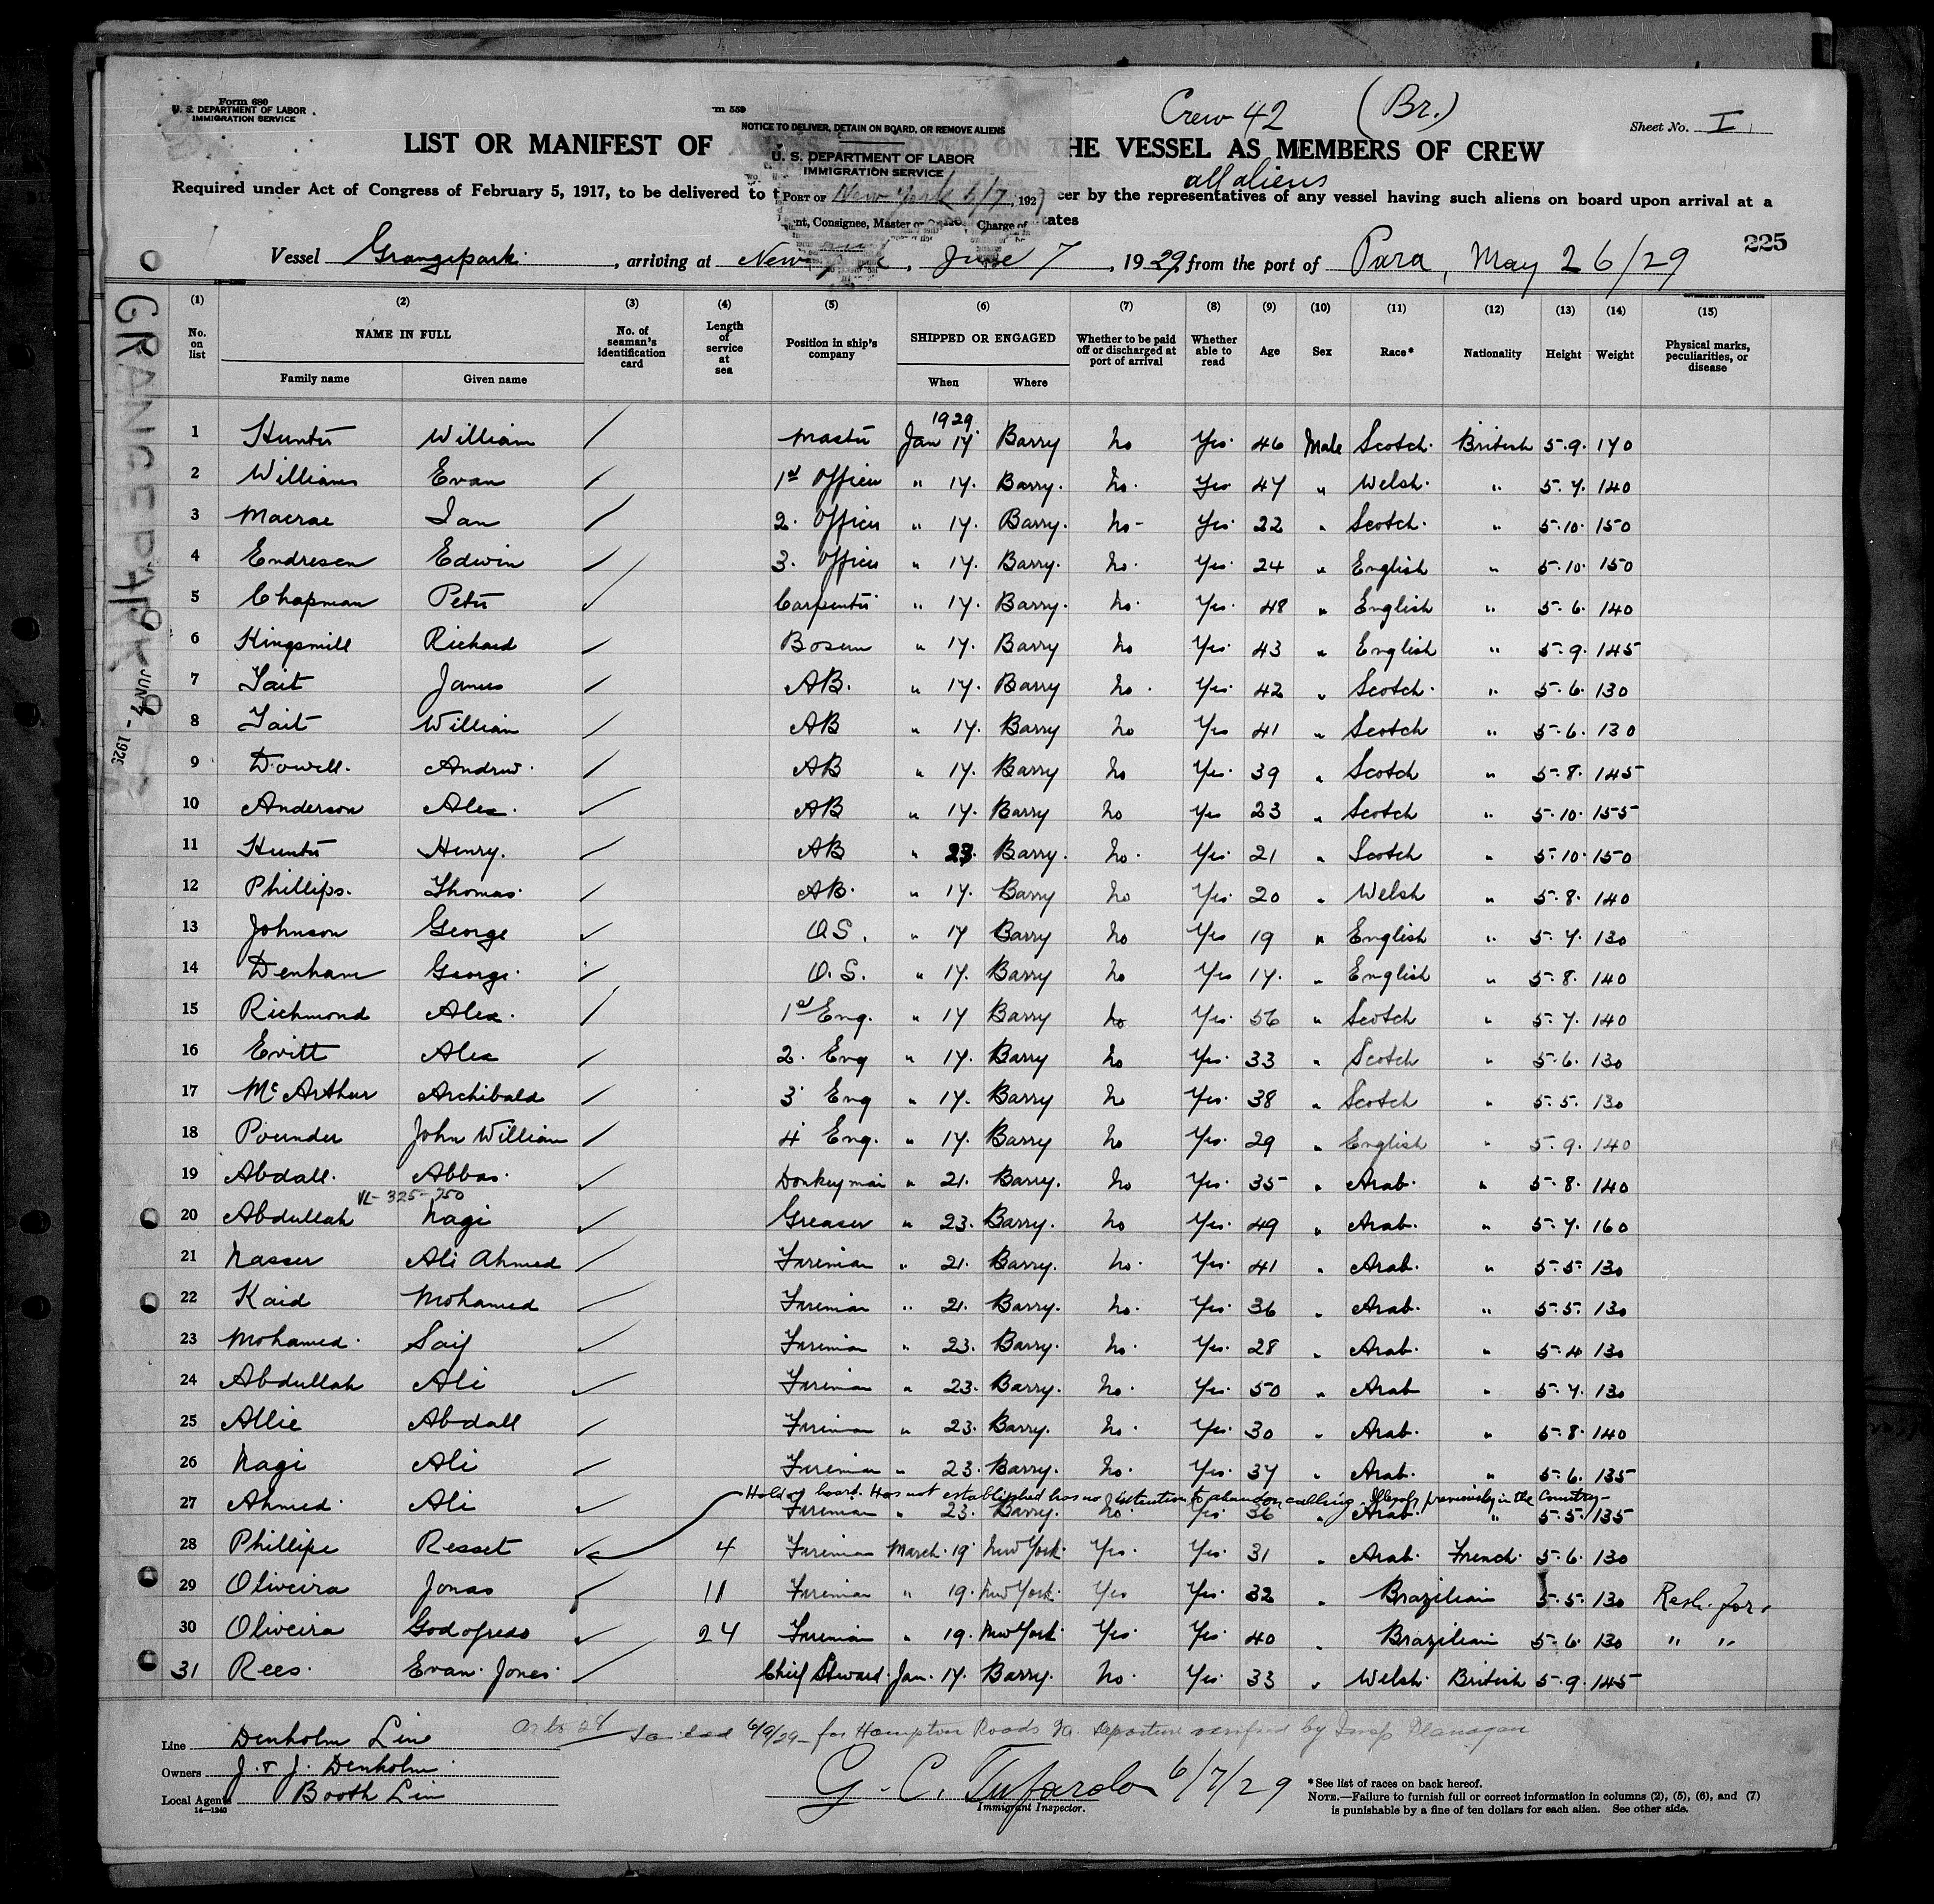 Form 680
U. S. DEPARTMENT OF LABOR
IMMIGRATION SERVICE
m 559
Crew 42 (Br.)
Sheet No. I
NOTICE TO DELIVER, DETAIN ON BOARD, OR REMOVE ALIENS
LIST OR MANIFEST OF HE VESSEL AS MEMBERS OF CREW
U. S. DEPARTMENT OF LABOR
IMMIGRATION SERVICE
all aliens
Required under Act of Congress of February 5, 1917, to be delivered to t cer by the representatives of any vessel having such aliens on board upon arrival at a
PORT OF New York 6/7, 192
nt, Consignee, Master or Charge of tates
225
Vessel Grangepark, arriving at New York, June 7, 1929, from the port of Para, May 26/29
GRANGEPARK
JUN 7 - 192
(1) (2) (3) (4) (5) (6) (7) (8) (9) (10) (11) (12) (13) (14) (15)
No. on list NAME IN FULL Family name Given name No. of seaman's identification card Length of service at sea Position in ship's company SHIPPED OR ENGAGED When Where Whether to be paid off or discharged at port of arrival Whether able to read Age Sex Race* Nationality Height Weight Physical marks, peculiarities, or disease
1929
1 Hunter William Master Jan 17. Barry no Yes. 46 Male Scotch. British 5.9. 170
2 Williams Evan 1st Officer " 17. Barry. no. Yes 47 " Welsh. " 5.7. 140
3 Macrae Ian 2. Officer " 17. Barry. no- Yes. 22 " Scotch. " 5.10. 150
4 Endresen Edwin 3. Officer " 17. Barry. no. Yes. 24 " English " 5.10. 150
5 Chapman Peter Carpenter " 17. Barry. no. Yes. 48 " English " 5.6. 140
6 Kingsmill Richard Bosun " 17. Barry no Yes. 43 " English " 5.9. 145
7 Tait James AB. " 17. Barry no. Yes. 42 " Scotch. " 5.6. 130
8 Tait William AB " 17. Barry no Yes 41 " Scotch " 5.6. 130
9 Dowell. Andrew. AB " 17. Barry no Yes. 39 " Scotch " 5.8. 145
10 Anderson Alex. AB " 17. Barry no Yes 23 " Scotch " 5.10. 155
11 Hunter Henry. AB " 23. Barry. no. Yes. 21 " Scotch " 5.10. 150
12 Phillips. Thomas. AB. " 17. Barry no Yes. 20 " Welsh " 5.8. 140
13 Johnson George O.S. " 17 Barry no Yes 19 " English " 5.7. 130
14 Denham George. O.S. " 17. Barry no Yes 17. " English " 5.8. 140
15 Richmond Alex. 1st Eng. " 17 Barry no Yes. 56 " Scotch " 5.7. 140
16 Evitt Alex 2. Eng " 17. Barry no Yes. 33 " Scotch " 5.6. 130
17 McArthur Archibald 3. Eng " 17. Barry no Yes. 38 " Scotch " 5.5. 130
18 Pounder John William 4 Eng. " 17. Barry no Yes. 29 " English " 5.9. 140
19 Abdall. Abbas. Donkeyman " 21. Barry. no Yes. 35 " Arab. " 5.8. 140
VL-325-750
20 Abdullah Nagi Greaser " 23. Barry. no Yes. 49 " Arab. " 5.7. 160
21 Nasser Ali Ahmed Fireman " 21. Barry. no. Yes. 41 " Arab. " 5.5. 130
22 Kaid Mohamed Fireman " 21. Barry. no. Yes. 36 " Arab. " 5.5. 130
23 Mohamed. Saif Fireman " 23. Barry. no. Yes. 28 " Arab. " 5.4 130
24 Abdullah Ali Fireman " 23. Barry. no. Yes. 50 " Arab " 5.7. 130
25 Allie Abdall Fireman " 23. Barry. no. Yes. 30 " Arab. " 5.8. 140
26 Nagi Ali Fireman " 23. Barry. no. Yes. 37 " Arab. " 5.6. 135
Hold on board. Has not established has no intention to abandon calling. Illegally previously in the Country-
27 Ahmed. Ali Fireman " 23. Barry. no. Yes 36 " Arab. " 5.5. 135
28 Phillipe Resset 4 Fireman March. 19. New York. Yes. Yes. 31 " Arab. French. 5.6. 130
29 Oliveira Jonas 11 Fireman " 19. New York. Yes Yes. 32 " Brazilian 5.5. 130 Resh. for.
30 Oliveira Godofredo 24 Fireman " 19. New York Yes. Yes. 40 " Brazilian 5.6. 130 " "
31 Rees. Evan Jones. Chief Steward. Jan. 17. Barry. no. Yes. 33 " Welsh. British 5.9. 145
As to 28 Sailed 6/9/29 - for Hampton Roads Va. Departure verified by Insp Flanagan
Line Denholm Line
Owners J. & J. Denholm.
Local Agents Booth Line
14-1240
G. C. Tufarolo 6/7/29
Immigrant Inspector.
*See list of races on back hereof.
NOTE.—Failure to furnish full or correct information in columns (2), (5), (6), and (7)
is punishable by a fine of ten dollars for each alien. See other side.